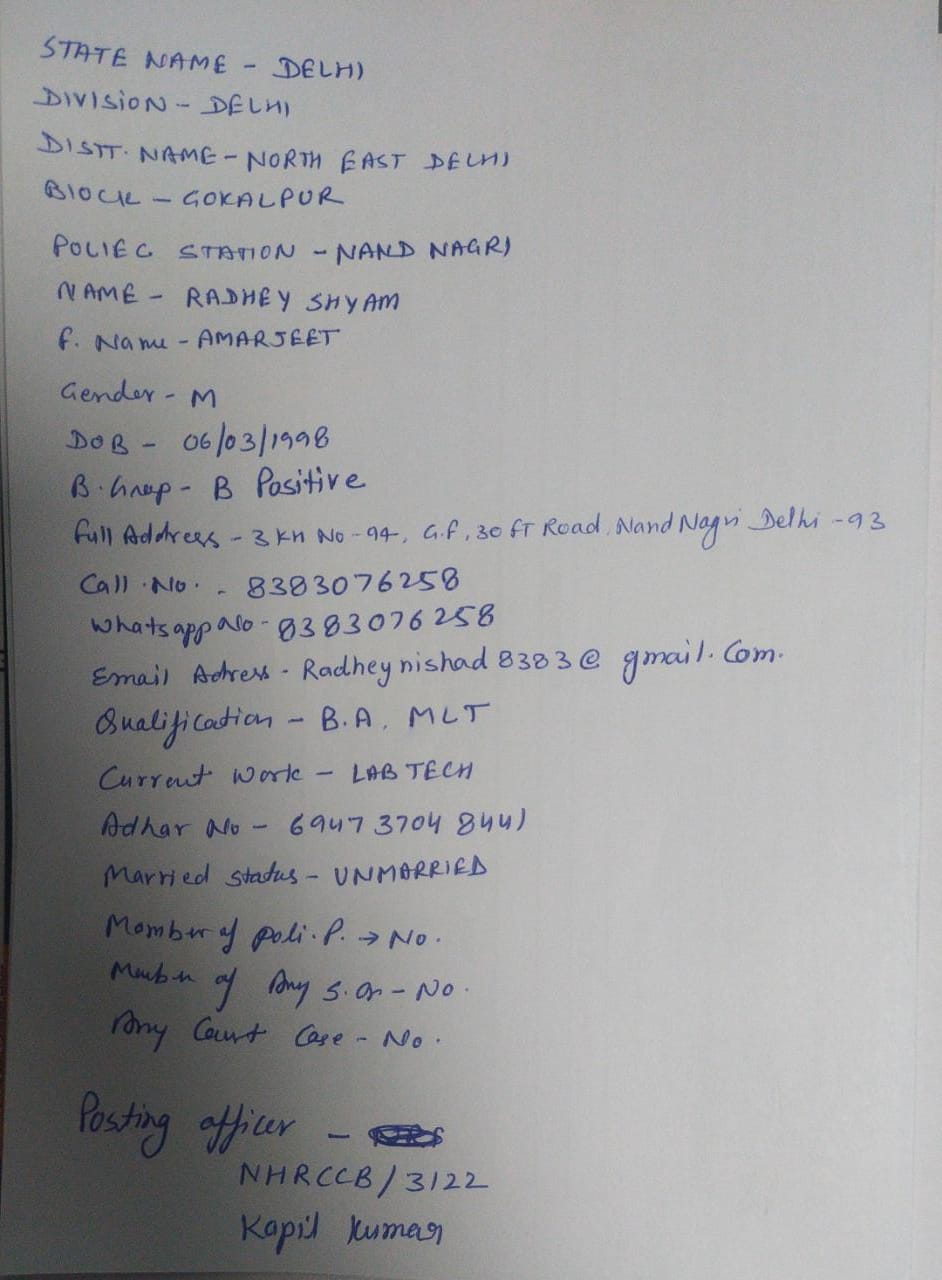 STATE NAME - DELHI
DIVISION - DELHI
DISTT. NAME - NORTH EAST DELHI
BLOCK - GOKALPUR
POLIEC STATION - NAND NAGRI
NAME - RADHEY SHYAM
F. Name - AMARJEET
Gender - M
DOB - 06/03/1998
B. Group - B Positive
Full Address - 3 KH No - 94, G.F, 30 FT Road, Nand Nagri Delhi - 93
Call .No. - 8383076258
Whatsapp No - 8383076258
Email Adress - Radheynishad8383@gmail.Com.
Qualification - B.A, MLT
Current Work - LAB TECH
Adhar No - 6947 3704 8441
Married status - UNMARRIED
Member of poli. P. → No.
Member of Any S. Or - No.
Any Court Case - No.
Posting officer -
NHRCCB/3122
Kapil Kumar